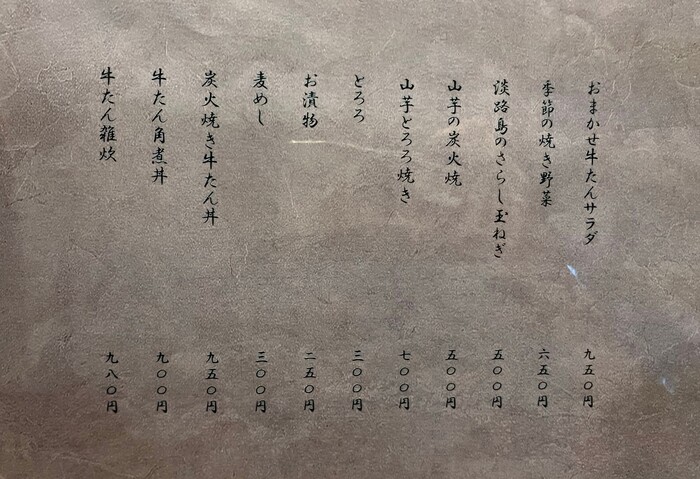 おまかせ牛たんサラダ 九五〇円
季節の焼き野菜 六五〇円
淡路島のさらし玉ねぎ 五〇〇円
山芋の炭火焼 五〇〇円
山芋とろろ焼き 七〇〇円
とろろ 三〇〇円
お漬物 二五〇円
麦めし 三〇〇円
炭火焼き牛たん丼 九五〇円
牛たん角煮丼 九〇〇円
牛たん雑炊 九八〇円